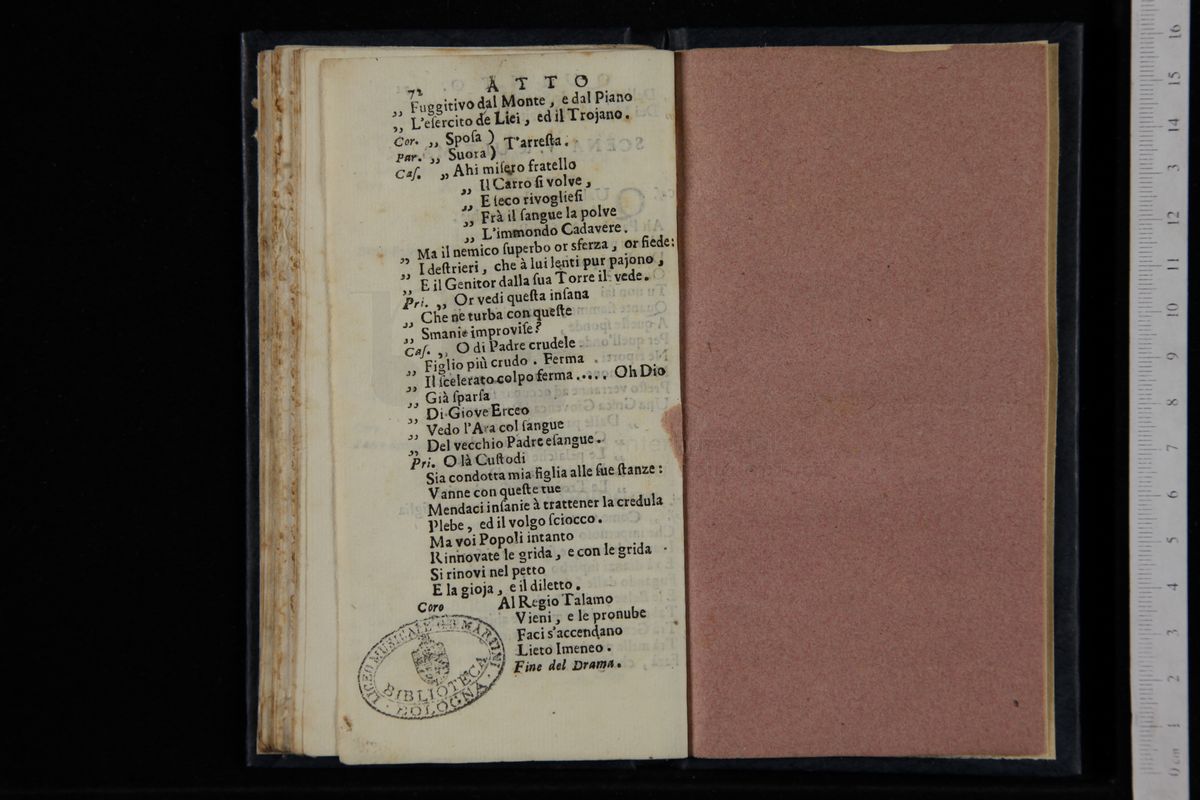 72 ATTO
„ Fuggitivo dal Monte, e dal Piano
„ L'eſercito de Liei, ed il Trojano.
Cor. „ Spoſa ) T'arreſta.
Par. „ Suora )
Caſ. „ Ahi miſero fratello
„ Il Carro ſi volve,
„ E ſeco rivoglieſi
„ Frà il ſangue la polve
„ L'immondo Cadavere.
„ Ma il nemico ſuperbo or sferza, or ſiede:
„ I deſtrieri, che à lui lenti pur pajono,
„ E il Genitor dalla ſua Torre il vede.
Pri. „ Or vedi queſta inſana
„ Che ne turba con queſte
„ Smanie improviſe?
Caſ. „ O di Padre crudele
„ Figlio più crudo. Ferma
„ Il ſcelerato colpo ferma..... Oh Dio
„ Già ſparſa
„ Di Giove Erceo
„ Vedo l'Ara col ſangue
„ Del vecchio Padre eſangue.
Pri. O là Cuſtodi
Sia condotta mia figlia alle ſue ſtanze:
Vanne con queſte tue
Mendaci inſanie à trattener la credula
Plebe, ed il volgo ſciocco.
Ma voi Popoli intanto
Rinnovate le grida, e con le grida
Si rinovi nel petto
E la gioja, e il diletto.
Coro Al Regio Talamo
Vieni, e le pronube
Faci s'accendano
Lieto Imeneo.
Fine del Drama.
LICEO MUSICALE G.B. MARTINI
BIBLIOTECA
· BOLOGNA ·
0 cm 1 2 3 4 5 6 7 8 9 10 11 12 13 14 15 16